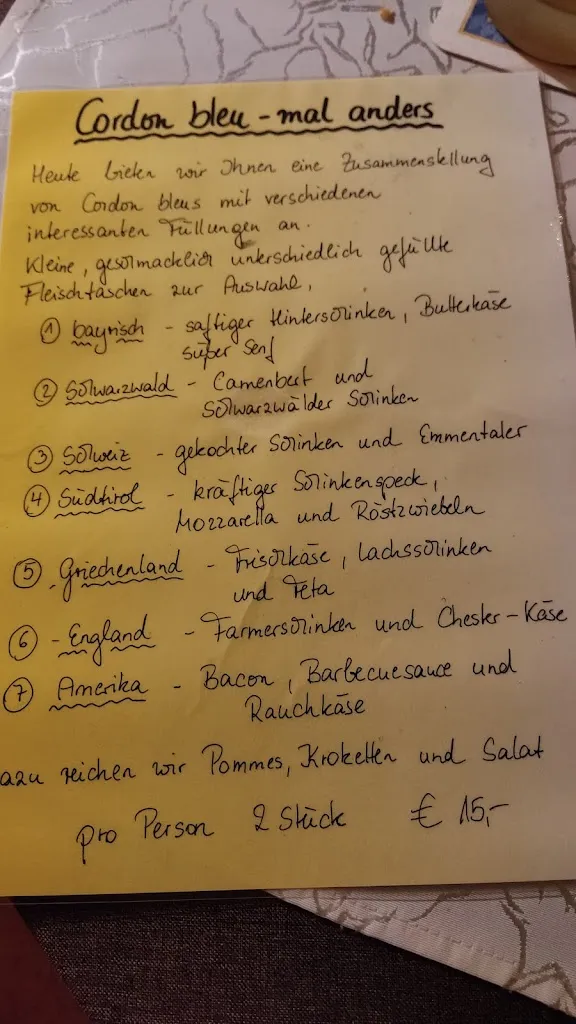 Cordon bleu - mal anders
Heute bieten wir Ihnen eine Zusammenstellung
von Cordon bleus mit verschiedenen
interessanten Füllungen an.
Kleine, geschmacklich unterschiedlich gefüllte
Fleischtaschen zur Auswahl,
① bayrisch - saftiger Hinterschinken, Butterkäse
süßer Senf
② Schwarzwald - Camenbert und
Schwarzwälder Schinken
③ Schweiz - gekochter Schinken und Emmentaler
④ Südtirol - kräftiger Schinkenspeck,
Mozzarella und Röstzwiebeln
⑤ Griechenland - Frischkäse, Lachsschinken
und Feta
⑥ - England - Farmerschinken und Chester-Käse
⑦ Amerika - Bacon, Barbecuesauce und
Rauchkäse
azu reichen wir Pommes, Kroketten und Salat
pro Person 2 Stück € 15,-